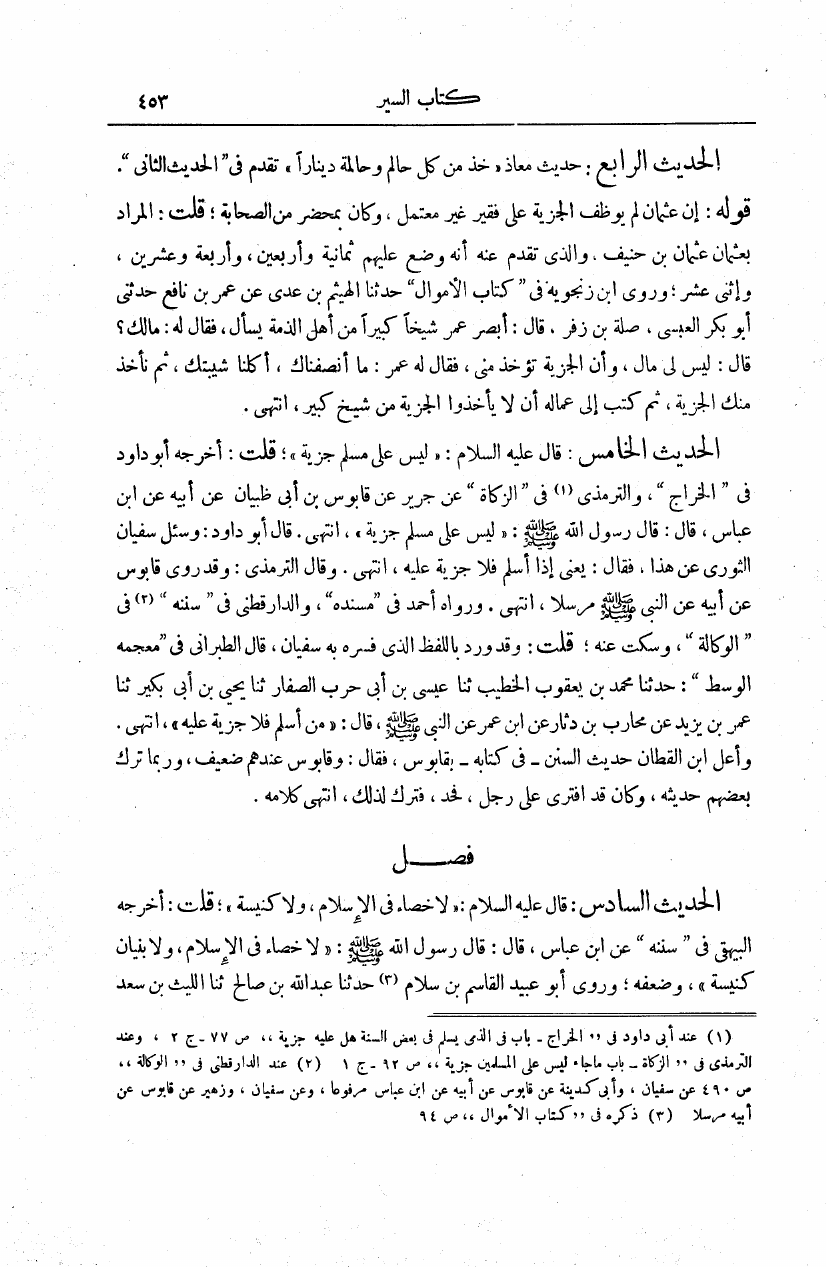 كتاب السير ٤٥٣
الحديث الرابع: حديث معاذ «خذ من كل حالم وحالمة ديناراً» تقدم فى "الحديث الثانى".
قوله: إن عثمان لم يوظف الجزية على فقير غير معتمل، وكان بمحضر من الصحابة؛ قلت: المراد
بعثمان عثمان بن حنيف، والذى تقدم عنه أنه وضع عليهم ثمانية وأربعين، وأربعة وعشرين،
وإثنى عشر؛ وروى ابن زنجويه فى "كتاب الأموال" حدثنا الهيثم بن عدى عن عمر بن نافع حدثنى
أبو بكر العبسى، صلة بن زفر، قال: أبصر عمر شيخاً كبيراً من أهل الذمة يسأل، فقال له: مالك؟
قال: ليس لى مال، وأن الجزية تؤخذ منى، فقال له عمر: ما أنصفناك، أكلنا شيبتك، ثم نأخذ
منك الجزية، ثم كتب إلى عماله أن لا يأخذوا الجزية من شيخ كبير، انتهى.
الحديث الخامس: قال عليه السلام: «ليس على مسلم جزية»؛ قلت: أخرجه أبو داود
فى "الخراج"، والترمذى (١) فى "الزكاة" عن جرير عن قابوس بن أبى ظبيان عن أبيه عن ابن
عباس، قال: قال رسول الله ﷺ: «ليس على مسلم جزية»، انتهى. قال أبو داود: وسئل سفيان
الثورى عن هذا، فقال: يعنى إذا أسلم فلا جزية عليه، انتهى. وقال الترمذى: وقد روى قابوس
عن أبيه عن النبى ﷺ مرسلا، انتهى. ورواه أحمد فى "مسنده"، والدارقطنى فى "سننه" (٢) فى
"الوكالة"، وسكت عنه؛ قلت: وقد ورد باللفظ الذى فسره به سفيان، قال الطبرانى فى "معجمه
الوسط": حدثنا محمد بن يعقوب الخطيب ثنا عيسى بن أبى حرب الصفار ثنا يحيى بن أبى بكير ثنا
عمر بن يزيد عن محارب بن دثار عن ابن عمر عن النبى ﷺ، قال: «من أسلم فلا جزية عليه»، انتهى.
وأعل ابن القطان حديث السنن ـ فى كتابه ـ بقابوس، فقال: وقابوس عندهم ضعيف، وربما ترك
بعضهم حديثه، وكان قد افترى على رجل، فحد، فترك لذلك، انتهى كلامه.
فصل
الحديث السادس: قال عليه السلام: «لا خصاء فى الإسلام، ولا كنيسة»؛ قلت: أخرجه
البيهقى فى "سننه" عن ابن عباس، قال: قال رسول الله ﷺ: «لا خصاء فى الإسلام، ولا بنيان
كنيسة»، وضعفه؛ وروى أبو عبيد القاسم بن سلام (٣) حدثنا عبد الله بن صالح ثنا الليث بن سعد
(١) عند أبى داود فى ,, الخراج ـ باب فى الذمى يسلم فى بعض السنة هل عليه جزية ,, ص ٧٧ ـ ج ٢ ، وعند
الترمذى فى ,, الزكاة ـ باب ماجاء ليس على المسلمين جزية ,, ص ٩٢ ـ ج ١ (٢) عند الدارقطنى فى ,, الوكالة ,,
ص ٤٩٠ عن سفيان ، وأبى كدينة عن قابوس عن أبيه عن ابن عباس مرفوعا ، وعن سفيان ، وزهير عن قابوس عن
أبيه مرسلا (٣) ذكره فى ,, كتاب الأموال ,, ص ٩٤